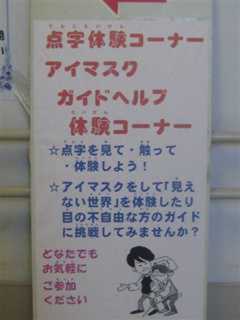 点字体験コーナー
アイマスク
ガイドヘルプ
たいけん
体験コーナー
☆点字を見て・触って
・体験しよう！
☆アイマスクをして「見え
ない世界」を体験したり
目の不自由な方のガイド
に挑戦してみませんか？
どなたでも
お気軽に
ご参加
ください